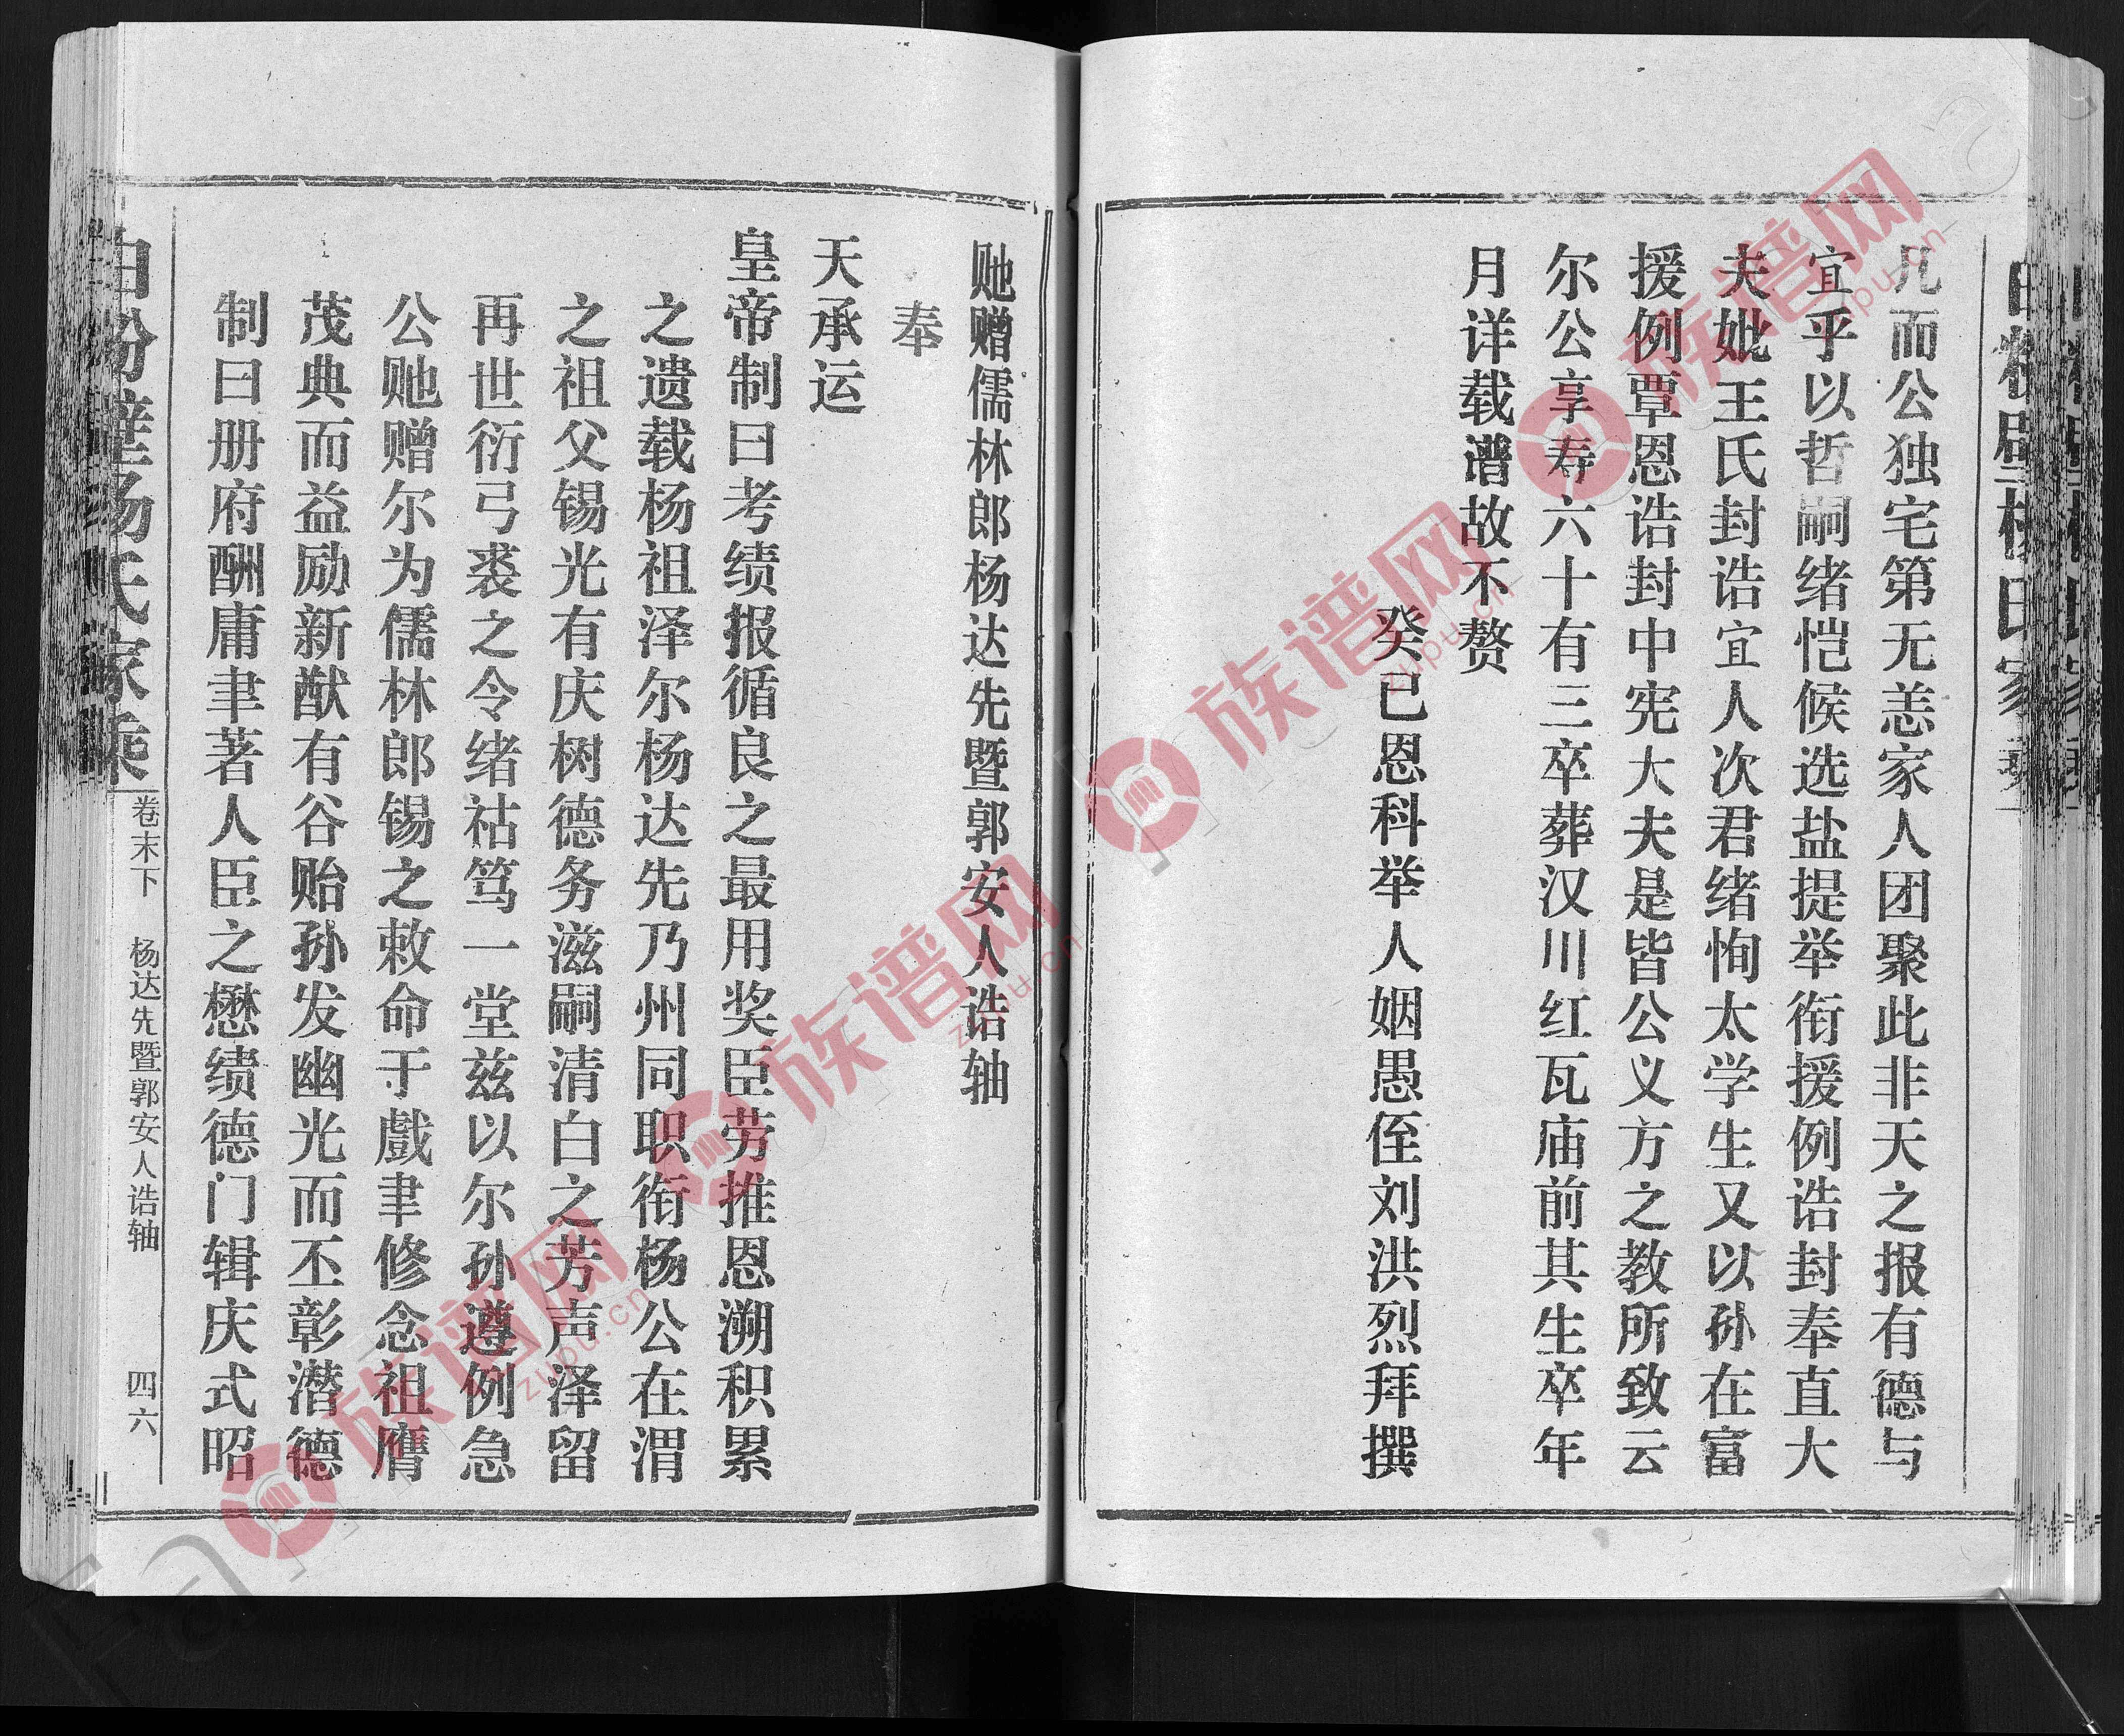 凡而公独宅第无恙家人团聚此非天之报有德与
宜乎以哲嗣绪恺候选盐提举衔援例诰封奉直大
夫妣王氏封诰宜人次君绪恂太学生又以孙在富
援例覃恩诰封中宪大夫是皆公义方之教所致云
尔公享寿六十有三卒葬汉川红瓦庙前其生卒年
月详载谱故不赘
癸巳恩科举人姻愚侄刘洪烈拜撰
貤赠儒林郎杨达先暨郭安人诰轴
奉
天承运
皇帝制曰考绩报循良之最用奖臣劳推恩溯积累
之遗载杨祖泽尔杨达先乃州同职衔杨公在渭
之祖父锡光有庆树德务滋嗣清白之芳声泽留
再世衍弓裘之令绪祜笃一堂兹以尔孙遵例急
公貤赠尔为儒林郎锡之敕命于戲聿修念祖膺
茂典而益励新猷有谷贻孙发幽光而丕彰潜德
制曰册府酬庸聿著人臣之懋绩德门辑庆式昭
白粉壁杨氏家乘
卷末下
杨达先暨郭安人诰轴
四六
族谱网
zupu.cn
族谱网
zupu.cn
族谱网
zupu.cn
族谱网
zupu.cn